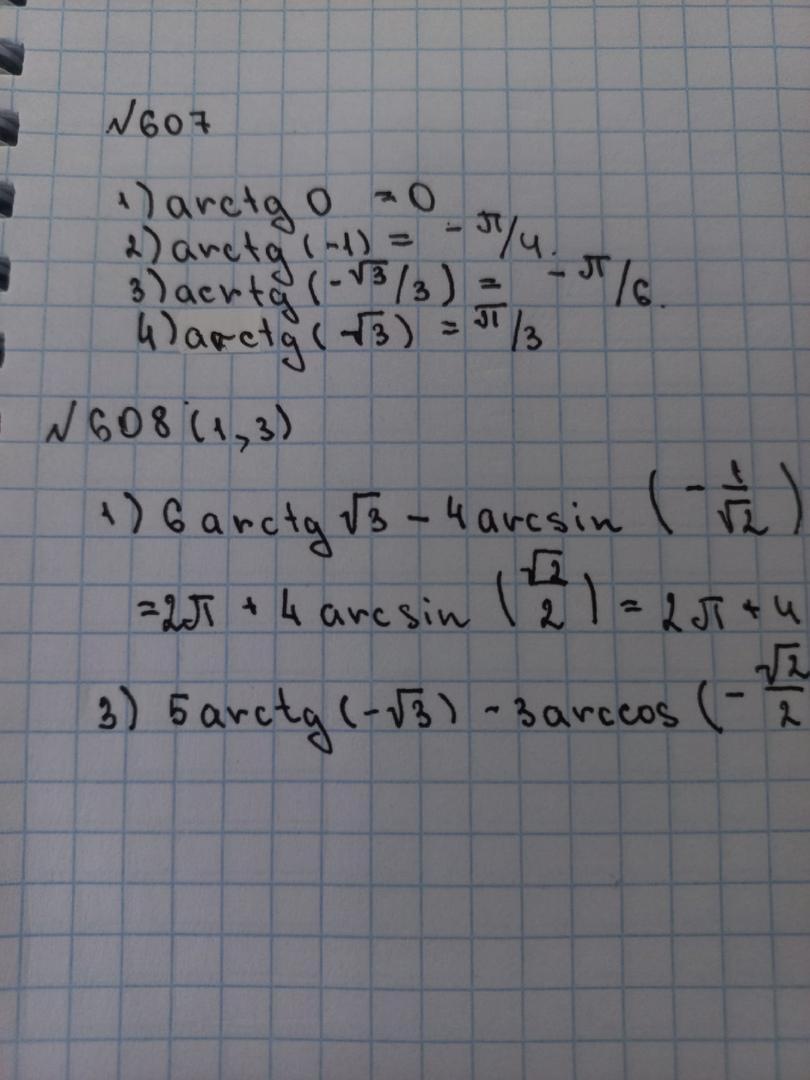 №607
1) arctg 0 = 0
2) arctg (-1) = -π/4.
3) acrtg (-√3/3) = -π/6.
4) arctg (√3) = π/3
№608 (1,3)
1) 6 arctg √3 - 4 arcsin (-1/√2)
= 2π + 4 arcsin (√2/2) = 2π + 4
3) 5 arctg (-√3) - 3 arccos (-√2/2